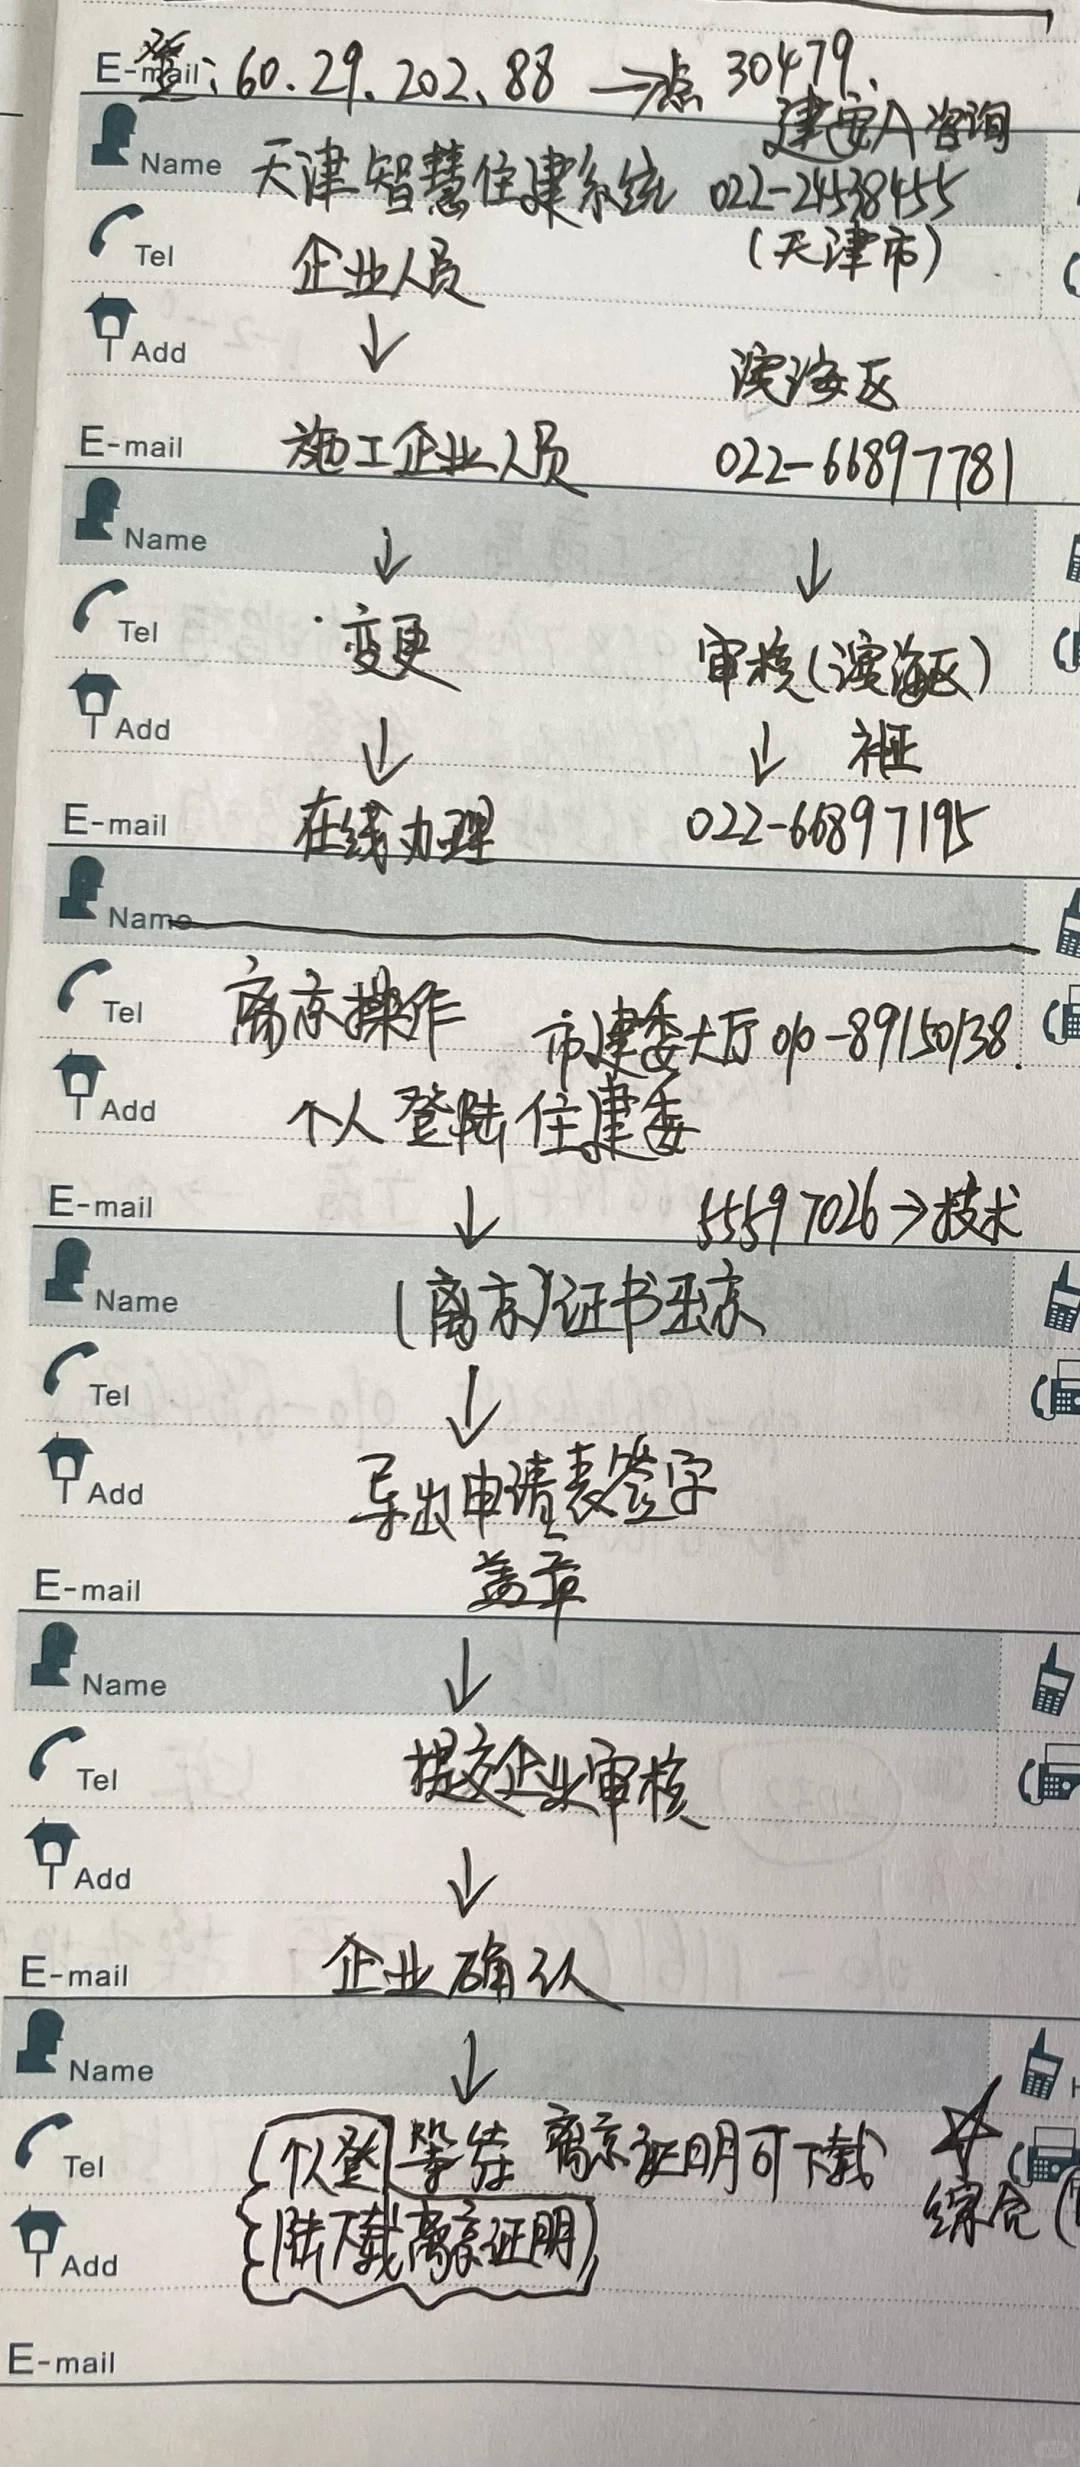 E-mail 登:60.29.202.88 →点 30479.
建安A咨询
Name 天津智慧住建系统 022-24538455
Tel 企业人员 (天津市)
↓
Add 滨海区
E-mail 施工企业人员 022-66897781
Name ↓ ↓
Tel 变更 审核(滨海区)
Add ↓ ↓ 补正
E-mail 在线办理 022-66897195
Name
Tel 离京操作 市建委大厅 010-89150138.
Add 个人登陆住建委
E-mail ↓ 55597026→技术
Name (离京)证书出京
Tel ↓
Add 导出申请表签字
E-mail 盖章
Name ↓
Tel 提交企业审核
Add ↓
E-mail 企业确认
Name ↓
Tel (个人登 等待 离京证明可下载 ☆
Add 陆下载离京证明) 综合(
E-mail